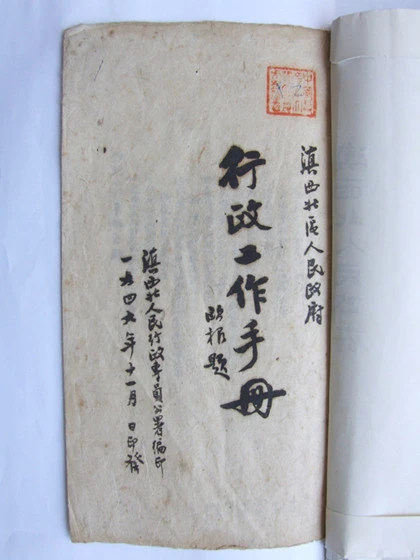 滇西北區人民政府
行政工作手冊
欧根題
滇西北人民行政專員公署編印
一九四九年十一月 日印發